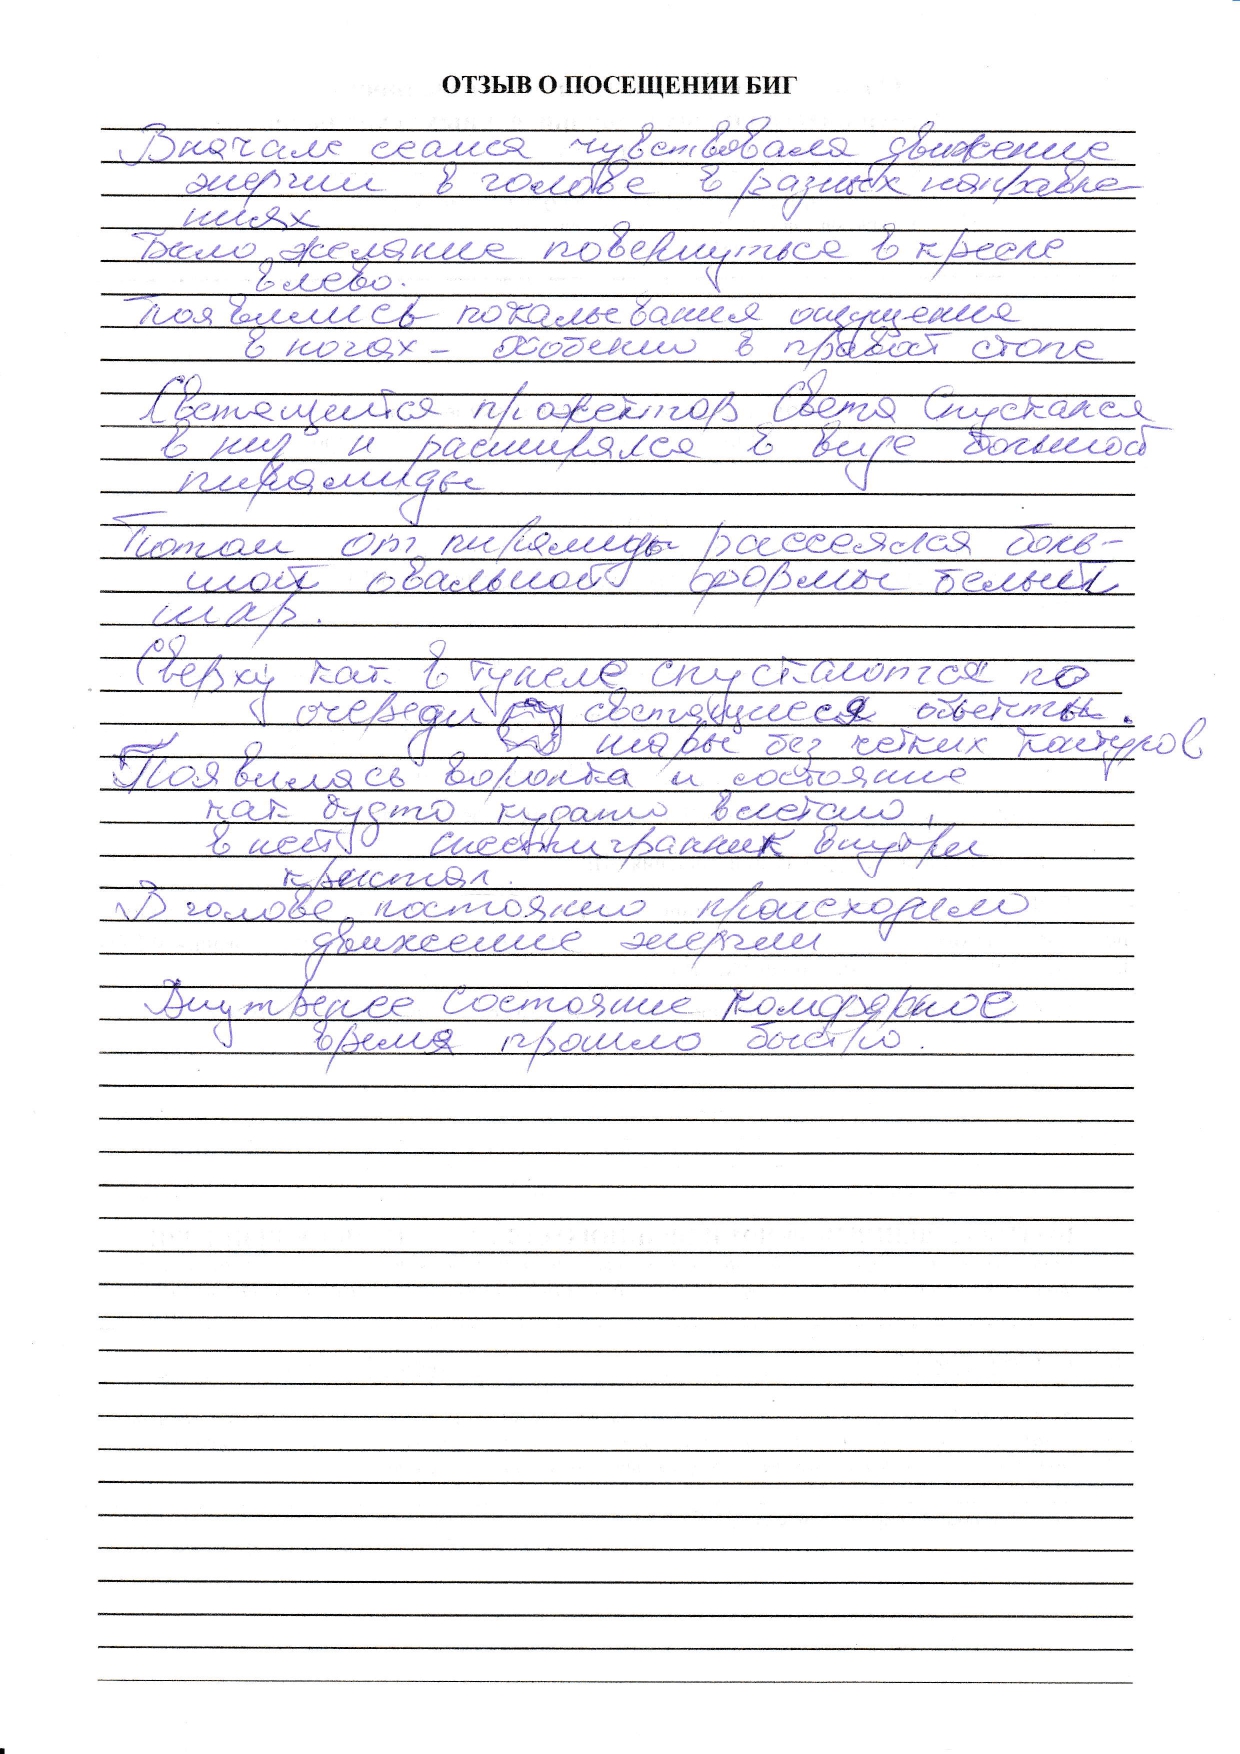 ОТЗЫВ О ПОСЕЩЕНИИ БИГ
Вначале сеанса чувствовала движение
энергии в голове в разных направле-
ниях
Было желание повернуться в кресле
влево.
Появились покалывания ощущения
в ногах – особенно в правой стопе
Светящейся прожектор Света Спускался
в низ и расширялся в виде большой
пирамиды
Потом от пирамиды рассеялся боль-
шой овальной формы белый
шар.
Сверху как в тунеле спускалются по
очереди светящиеся объекты.
шары без четких контуров
Появилась воронка и состояние
как будто кудато влетаю,
в ней шестигранник внутри
кристал.
В голове постоянно происходило
движение энергии
Внутренее состояние комфорное
время прошло быстро.